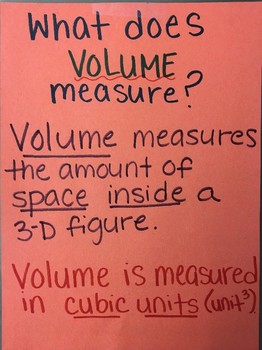 What does
VOLUME
measure?
Volume measures
the amount of
space inside a
3-D figure.
Volume is measured
in cubic units (unit³).